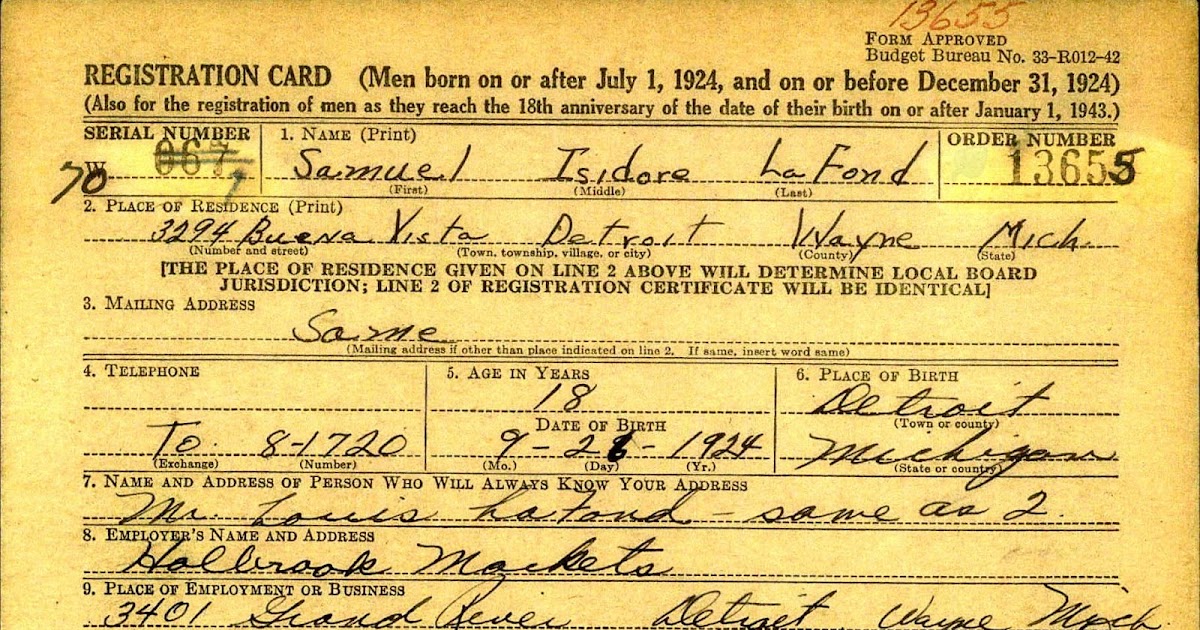 13655
FORM APPROVED
Budget Bureau No. 33-R012-42
REGISTRATION CARD (Men born on or after July 1, 1924, and on or before December 31, 1924)
(Also for the registration of men as they reach the 18th anniversary of the date of their birth on or after January 1, 1943.)
SERIAL NUMBER 1. NAME (Print) ORDER NUMBER
W 70 Samuel Isidore LaFond 13655
(First) (Middle) (Last)
2. PLACE OF RESIDENCE (Print)
3294 Buena Vista Detroit Wayne Mich.
(Number and street) (Town, township, village, or city) (County) (State)
[THE PLACE OF RESIDENCE GIVEN ON LINE 2 ABOVE WILL DETERMINE LOCAL BOARD
JURISDICTION; LINE 2 OF REGISTRATION CERTIFICATE WILL BE IDENTICAL]
3. MAILING ADDRESS
Same
(Mailing address if other than place indicated on line 2. If same, insert word same)
4. TELEPHONE 5. AGE IN YEARS 6. PLACE OF BIRTH
18 Detroit
DATE OF BIRTH (Town or county)
To. 8-1720 9- - 1924 Michigan
(Exchange) (Number) (Mo.) (Day) (Yr.) (State or country)
7. NAME AND ADDRESS OF PERSON WHO WILL ALWAYS KNOW YOUR ADDRESS
Mr. Louis LaFond - same as 2.
8. EMPLOYER'S NAME AND ADDRESS
Holbrook Markets
9. PLACE OF EMPLOYMENT OR BUSINESS
3401 Grand River Detroit Wayne Mich.